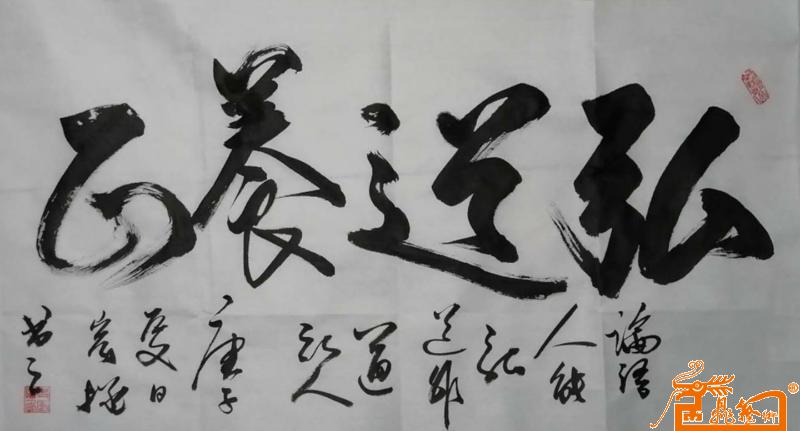 弘道養正
論語
人能
弘
道非
道
弘人
庚子
夏日
書之